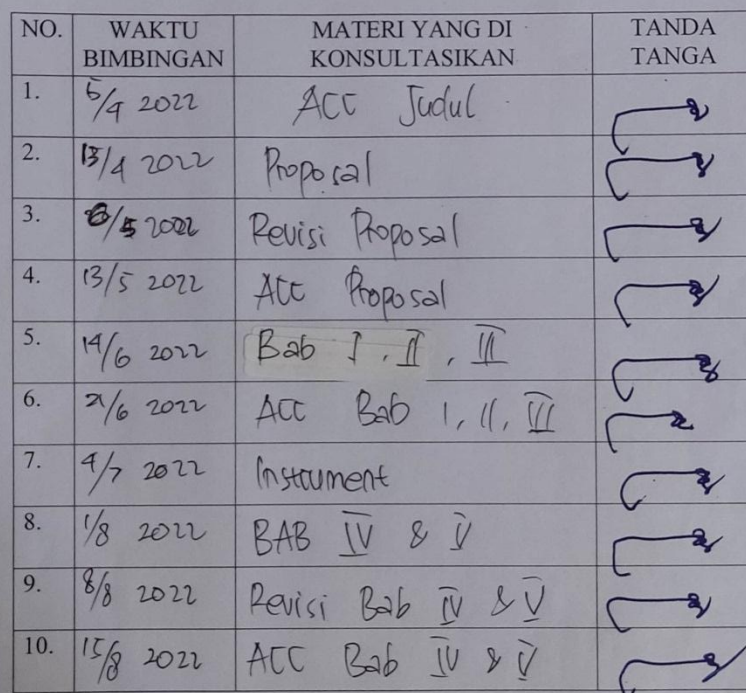 NO. WAKTU BIMBINGAN MATERI YANG DI KONSULTASIKAN TANDA TANGA
1. 5/4 2022 ACC Judul
2. 13/4 2022 Proposal
3. 6/5 2022 Revisi Proposal
4. 13/5 2022 ACC Proposal
5. 14/6 2022 Bab I, II, III
6. 21/6 2022 ACC Bab I, II, III
7. 4/7 2022 Instrument
8. 1/8 2022 BAB IV & V
9. 8/8 2022 Revisi Bab IV & V
10. 15/8 2022 ACC Bab IV & V